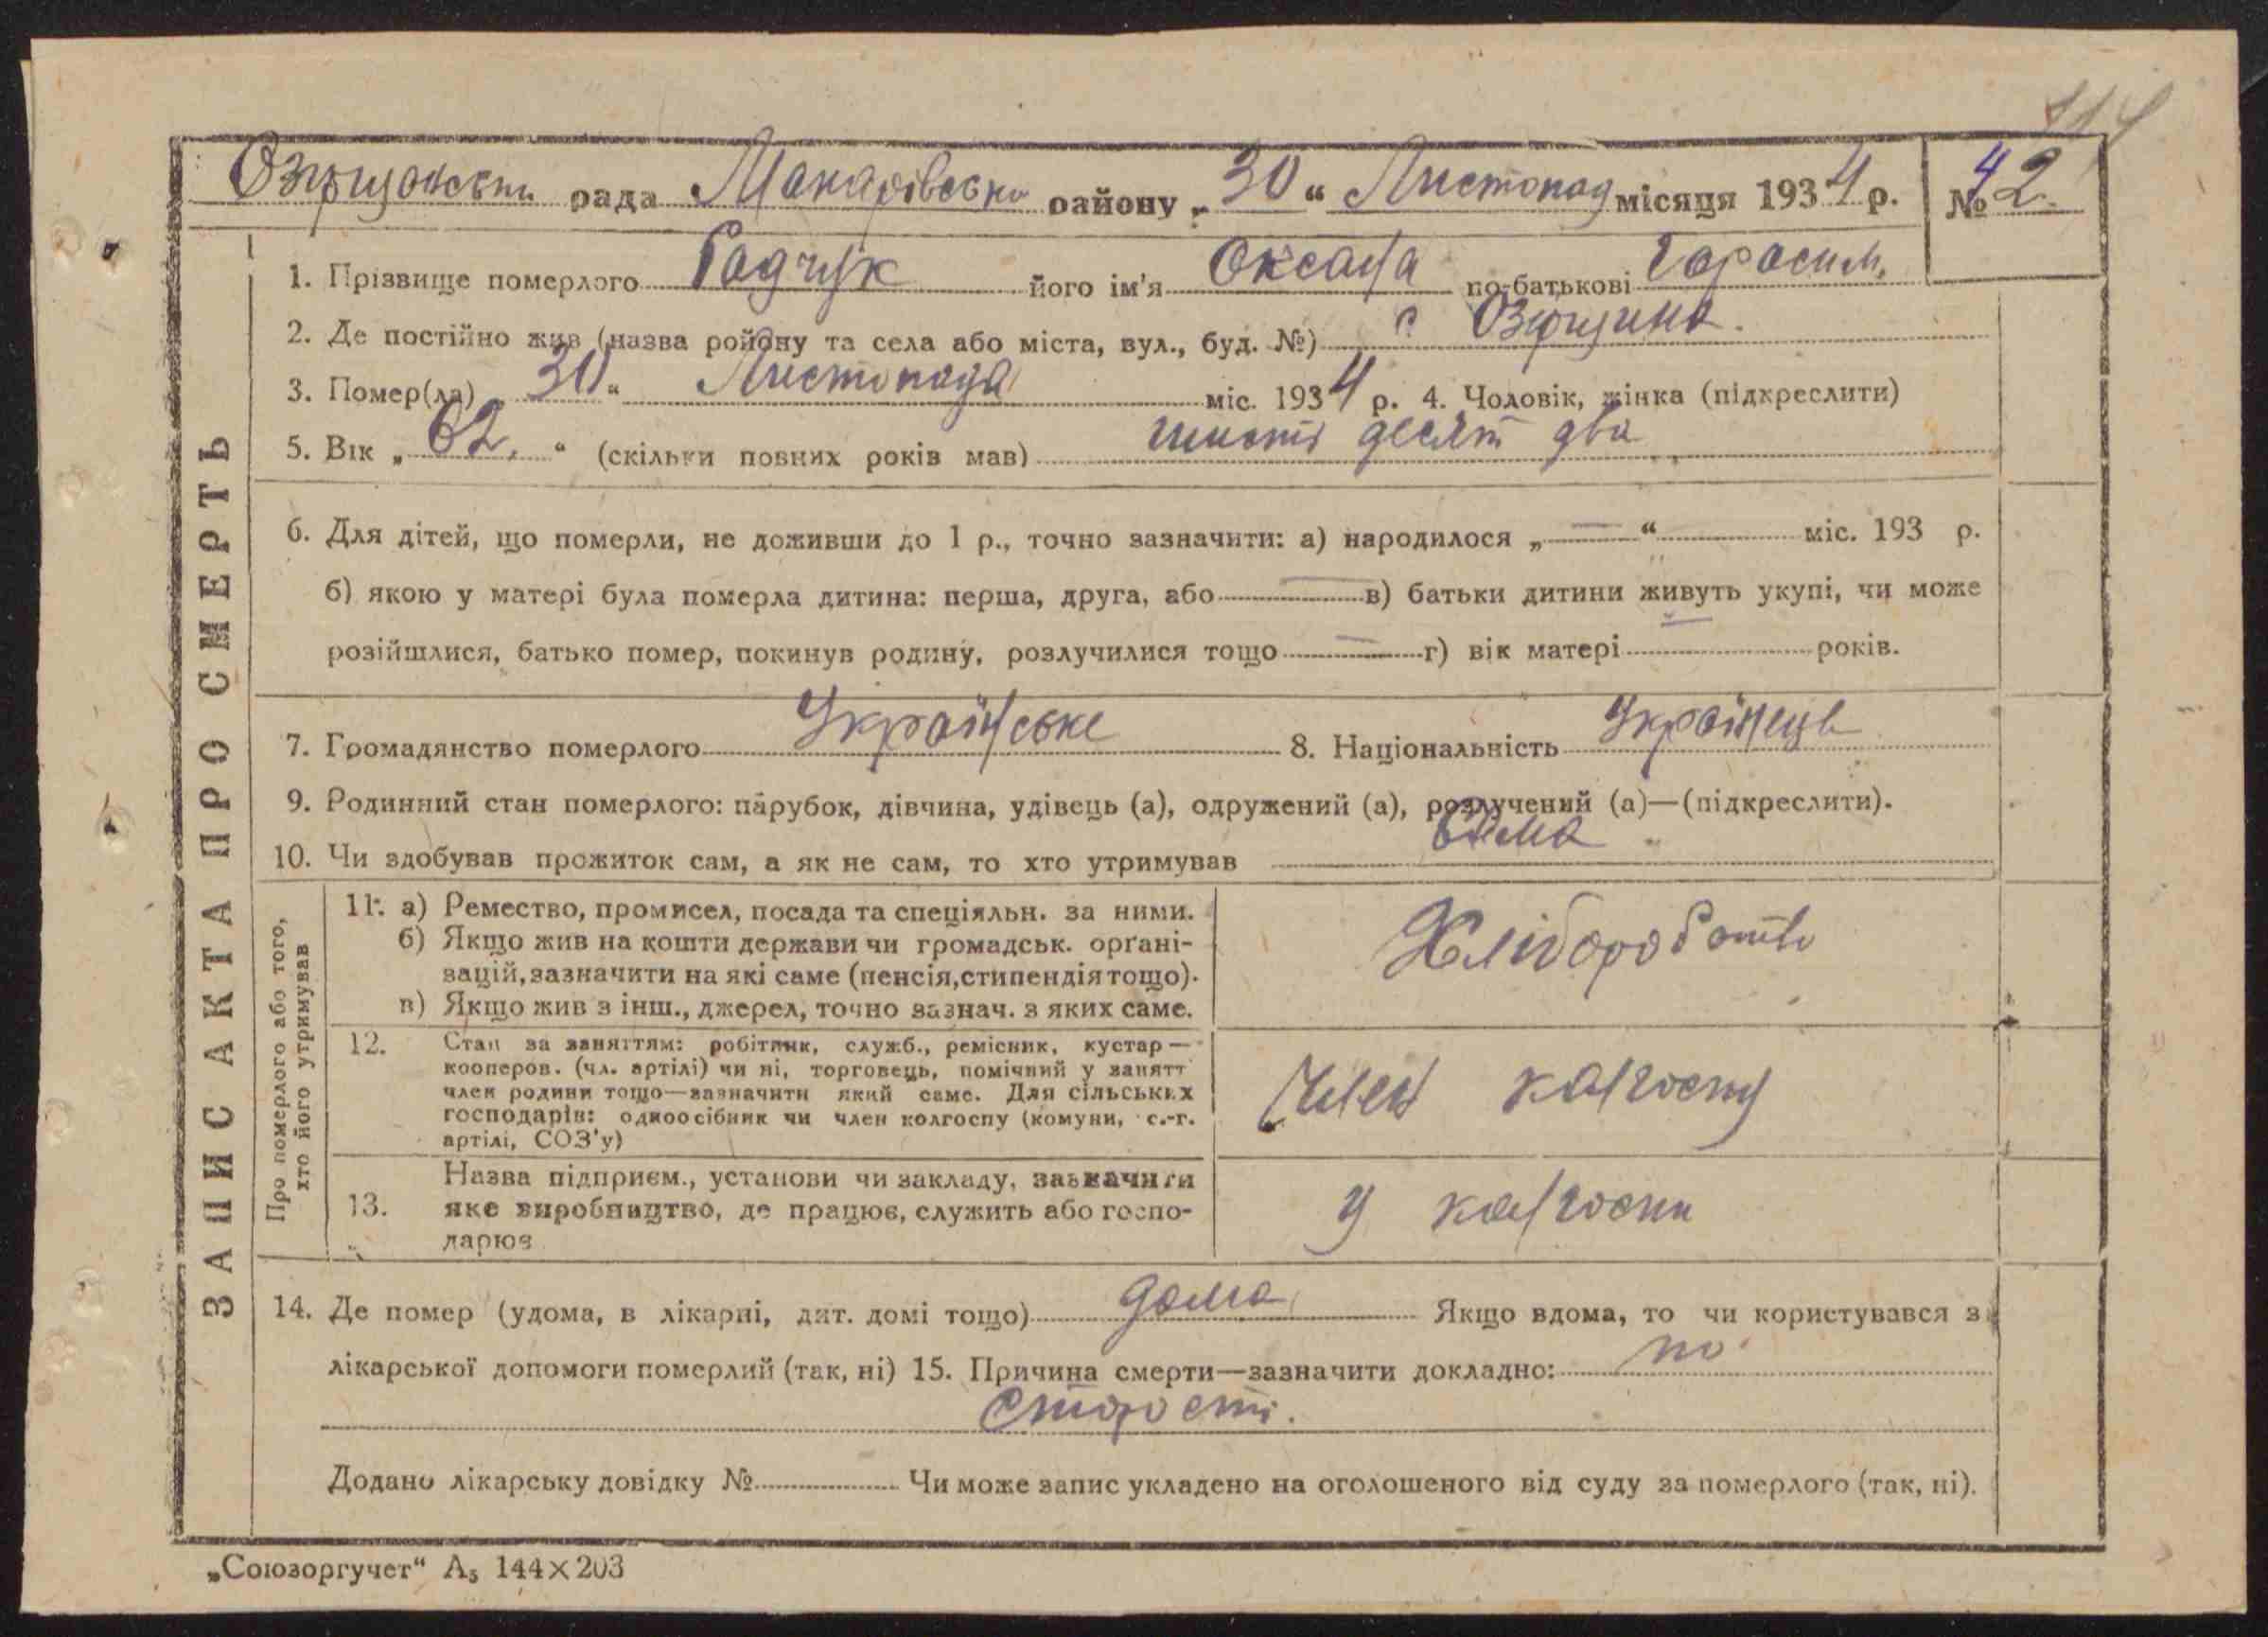 114
Озирщанська рада Макарівсько району „30“ Листопад місяця 1934 р. № 42.
ЗАПИС АКТА ПРО СМЕРТЬ
1. Прізвище померлого Радчук його ім'я Оксана по-батькові Гарасим.
2. Де постійно жив (назва району та села або міста, вул., буд. №) с Озирщина.
3. Помер(ла) 30“ Листопада міс. 1934 р. 4. Чоловік, жінка (підкреслити)
5. Вік „62.“ (скільки повних років мав) шисть десят два
6. Для дітей, що померли, не доживши до 1 р., точно зазначити: а) народилося „—“ міс. 193 р.
б) якою у матері була померла дитина: перша, друга, або — в) батьки дитини живуть укупі, чи може
розійшлися, батько помер, покинув родину, розлучилися тощо — г) вік матері років.
7. Громадянство померлого Українське 8. Національність Українець
9. Родинний стан померлого: парубок, дівчина, удівець (а), одружений (а), розлучений (а)—(підкреслити).
10. Чи здобував прожиток сам, а як не сам, то хто утримував Сама
Про померлого або того,
хто його утримував
11. а) Ремество, промисел, посада та спеціяльн. за ними.
б) Якщо жив на кошти держави чи громадськ. орґані-
зацій, зазначити на які саме (пенсія, стипендія тощо).
в) Якщо жив з інш., джерел, точно зазнач. з яких саме.
Хліборобство
12. Стан за заняттям: робітник, служб., ремісник, кустар—
кооперов. (чл. артілі) чи ні, торговець, помічний у занятт
член родини тощо—зазначити який саме. Для сільських
господарів: одноосібник чи член колгоспу (комуни, с.-г.
артілі, СОЗ'у)
Член колгоспу
13. Назва підприєм., установи чи закладу, зазначити
яке виробництво, де працює, служить або госпо-
дарює
У колгоспи
14. Де помер (удома, в лікарні, дит. домі тощо) дома Якщо вдома, то чи користувався з
лікарської допомоги померлий (так, ні) 15. Причина смерти—зазначити докладно: по
старости.
Додано лікарську довідку № Чи може запис укладено на оголошеного від суду за померлого (так, ні).
„Союзоргучет“ А5 144×203